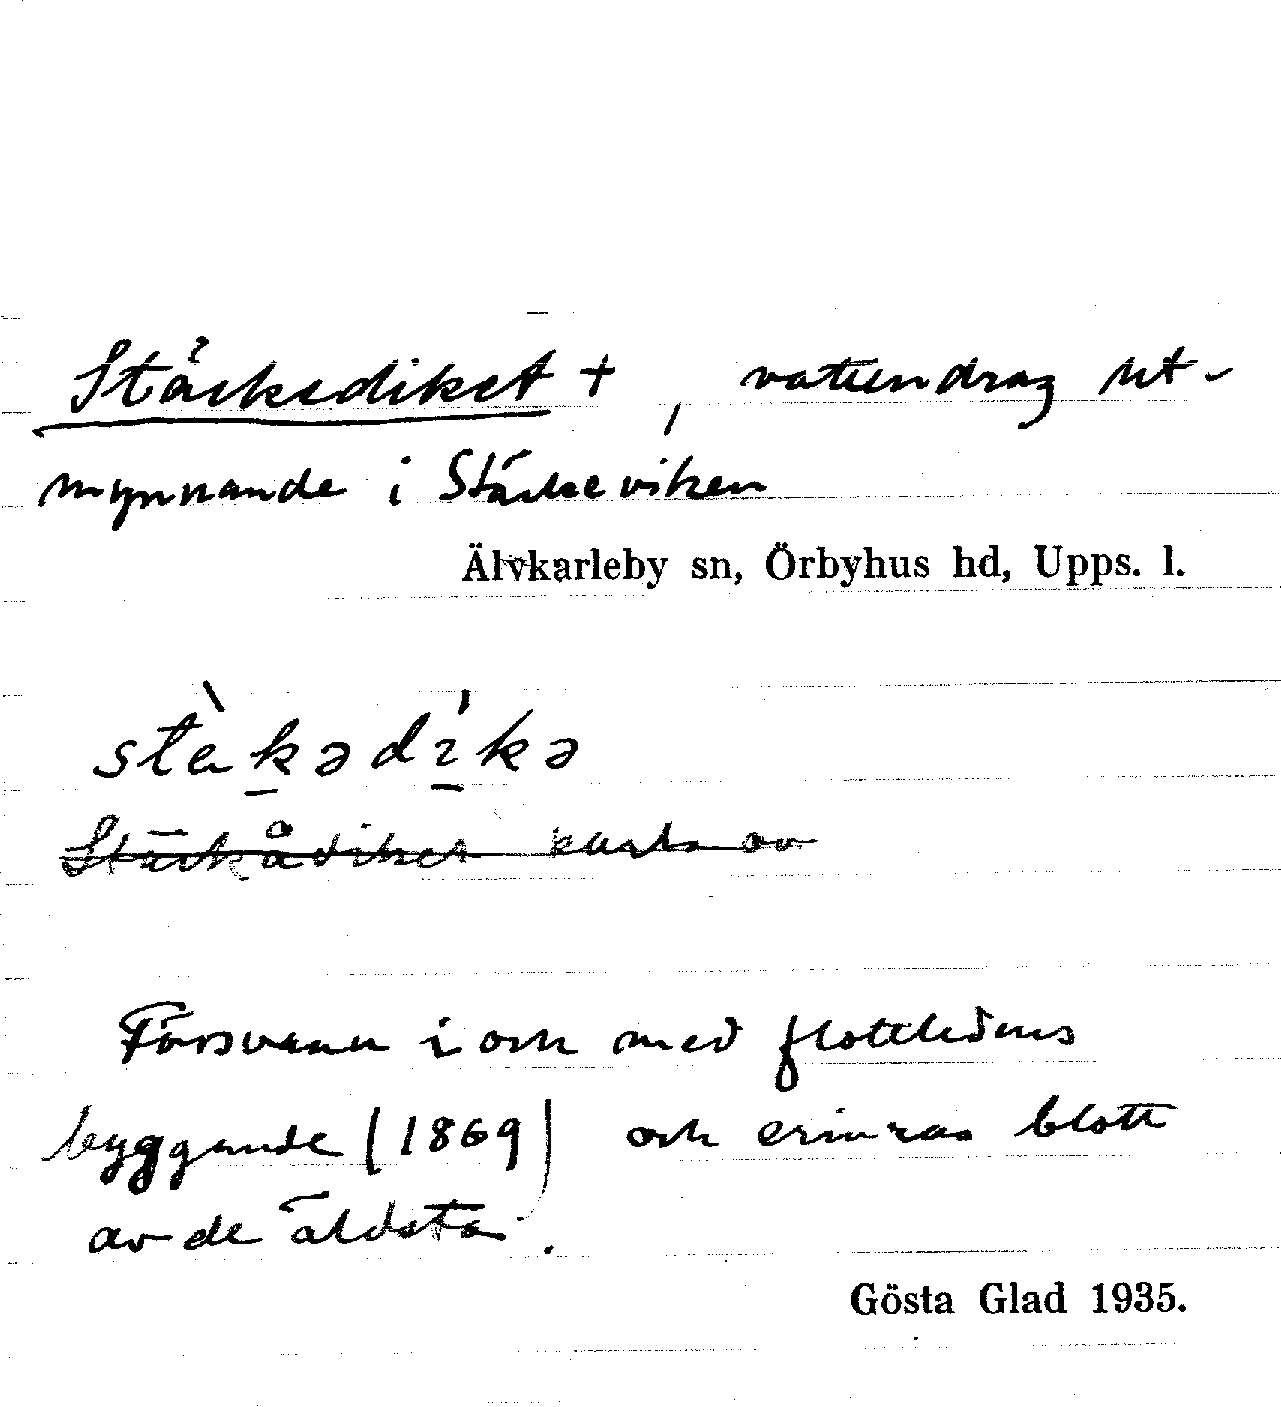 Stäckediket +, vattendrag ut-
mynnande i Stäckeviken
Älvkarleby sn, Örbyhus hd, Upps. l.
stὲkədíkə
Stäckådiket karta av
Försvann i och med flottledens
byggande (1869) och erinras blott
av de äldsta.
Gösta Glad 1935.